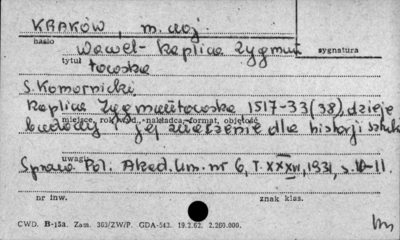 KRAKÓW, m. woj
hasło
Wawel - Kaplica Zygmun
sygnatura
tytuł
towska
S. Komornicki,
Kaplica Zygmuntowska 1517-33(38), dzieje
miejsce, rok wyd., nakładca, format, objętość
budowy i jej znaczenie dla historji sztuki
uwagi
Spraw. Pol. Akad. Um. nr 6, T. XXXVI, 1931, s. 10-11.
nr inw.
znak klas.
CWD. B-15a. Zam. 363/ZW/P. GDA-543. 19.2.62. 2.200.000.